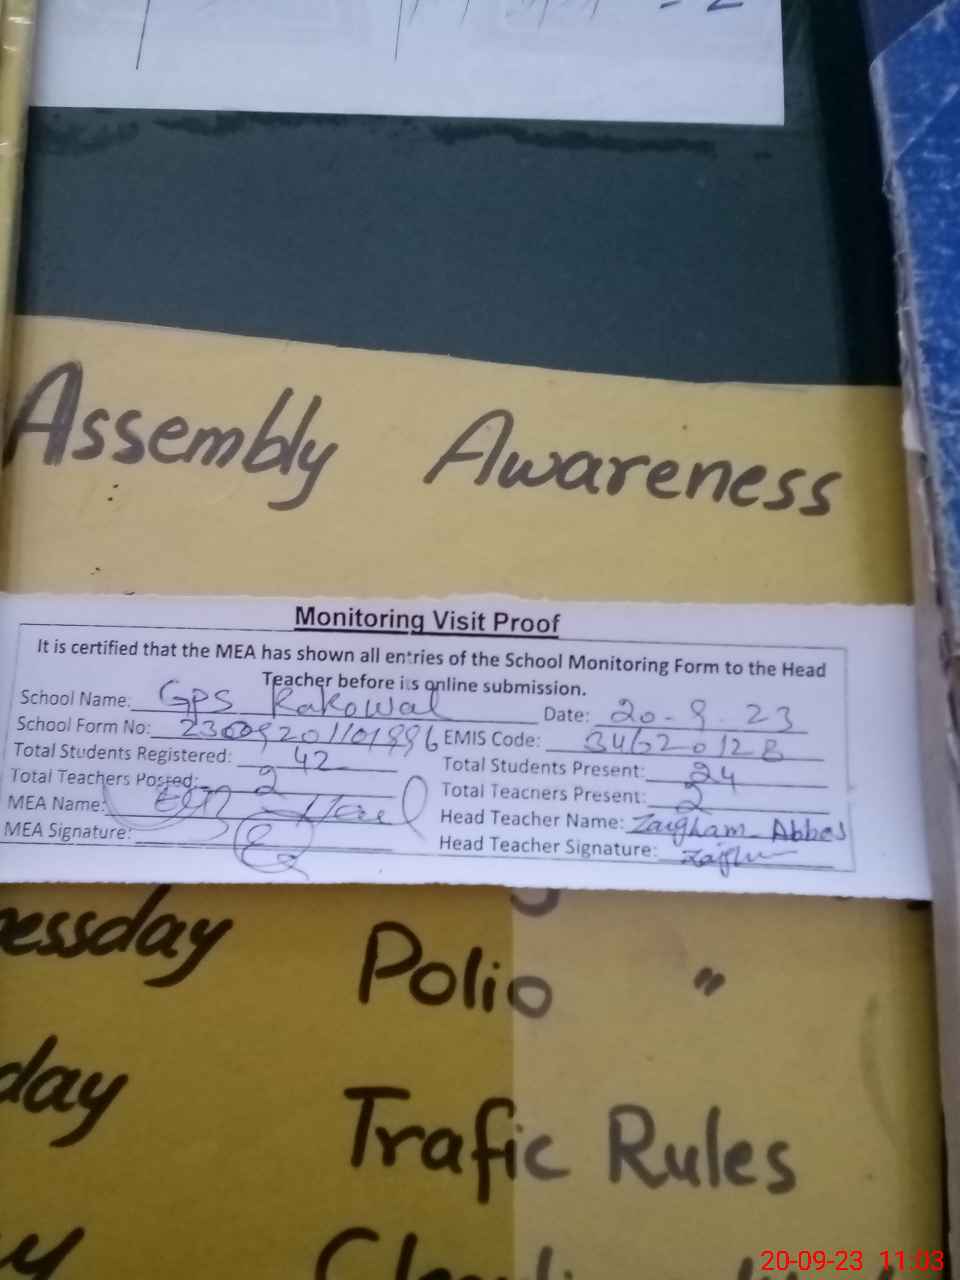 Assembly Awareness
Monitoring Visit Proof
It is certified that the MEA has shown all entries of the School Monitoring Form to the Head
Teacher before its online submission.
School Name: GPS Rakowal Date: 20-9-23
School Form No: EMIS Code: 34620128
Total Students Registered: 42 Total Students Present: 24
Total Teachers Posted: 2 Total Teacners Present: 2
MEA Name: Head Teacher Name: Zaigham Abbas
MEA Signature: Head Teacher Signature:
nessday Polio "
day Trafic Rules
y
20-09-23 11:03